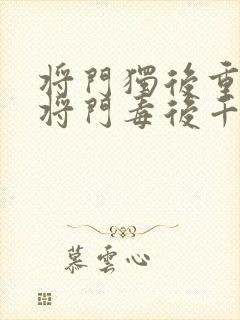 將門獨後重
將門毒後千
慕雲心